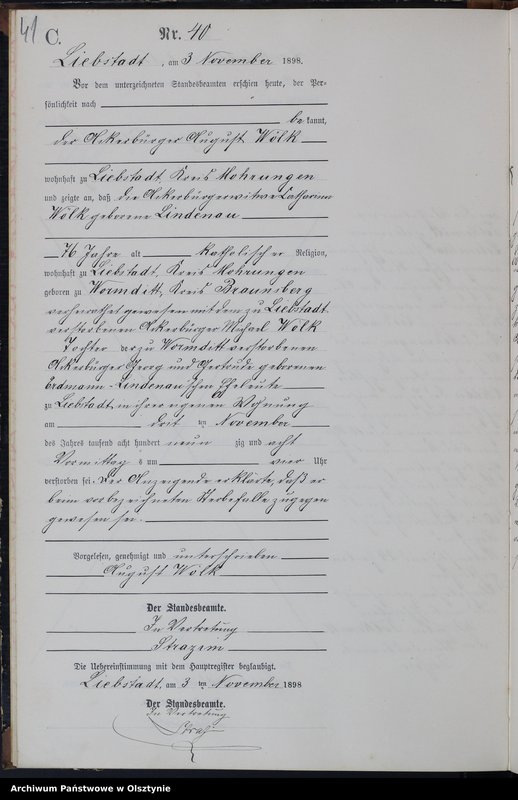 41
C.
Nr. 40
Liebstadt, am 3 November 1898.
Vor dem unterzeichneten Standesbeamten erschien heute, der Per-
sönlichkeit nach
be kannt,
der Ackerbürger August Wölk
wohnhaft zu Liebstadt, Kreis Mohrungen
und zeigte an, daß die Ackerbürgerwitwe Catharina
Wölk geborene Lindenau
76 Jahre alt katholisch er Religion,
wohnhaft zu Liebstadt, Kreis Mohrungen
geboren zu Wormditt, Kreis Braunsberg
verheirathet gewesen mit dem zu Liebstadt
verstorbenen Ackerbürger Michael Wölk
Tochter der zu Wormditt verstorbenen
Ackerbürger Georg und Gertrude geborenen
Erdmann-Lindenau'schen Eheleute
zu Liebstadt, in ihrer eigenen Wohnung
am drit ten November
des Jahres tausend acht hundert neun zig und acht
Vormittag s um vier Uhr
verstorben sei. Der Anzeigende erklärte, daß er
beim vorbezeichneten Sterbefalle zugegen
gewesen sei.
Vorgelesen, genehmigt und unterschrieben
August Wölk
Der Standesbeamte.
In Vertretung
Strazim
Die Uebereinstimmung mit dem Hauptregister beglaubigt.
Liebstadt, am 3 ten November 1898
Der Standesbeamte.
In Vertretung
Archiwum Państwowe w Olsztynie